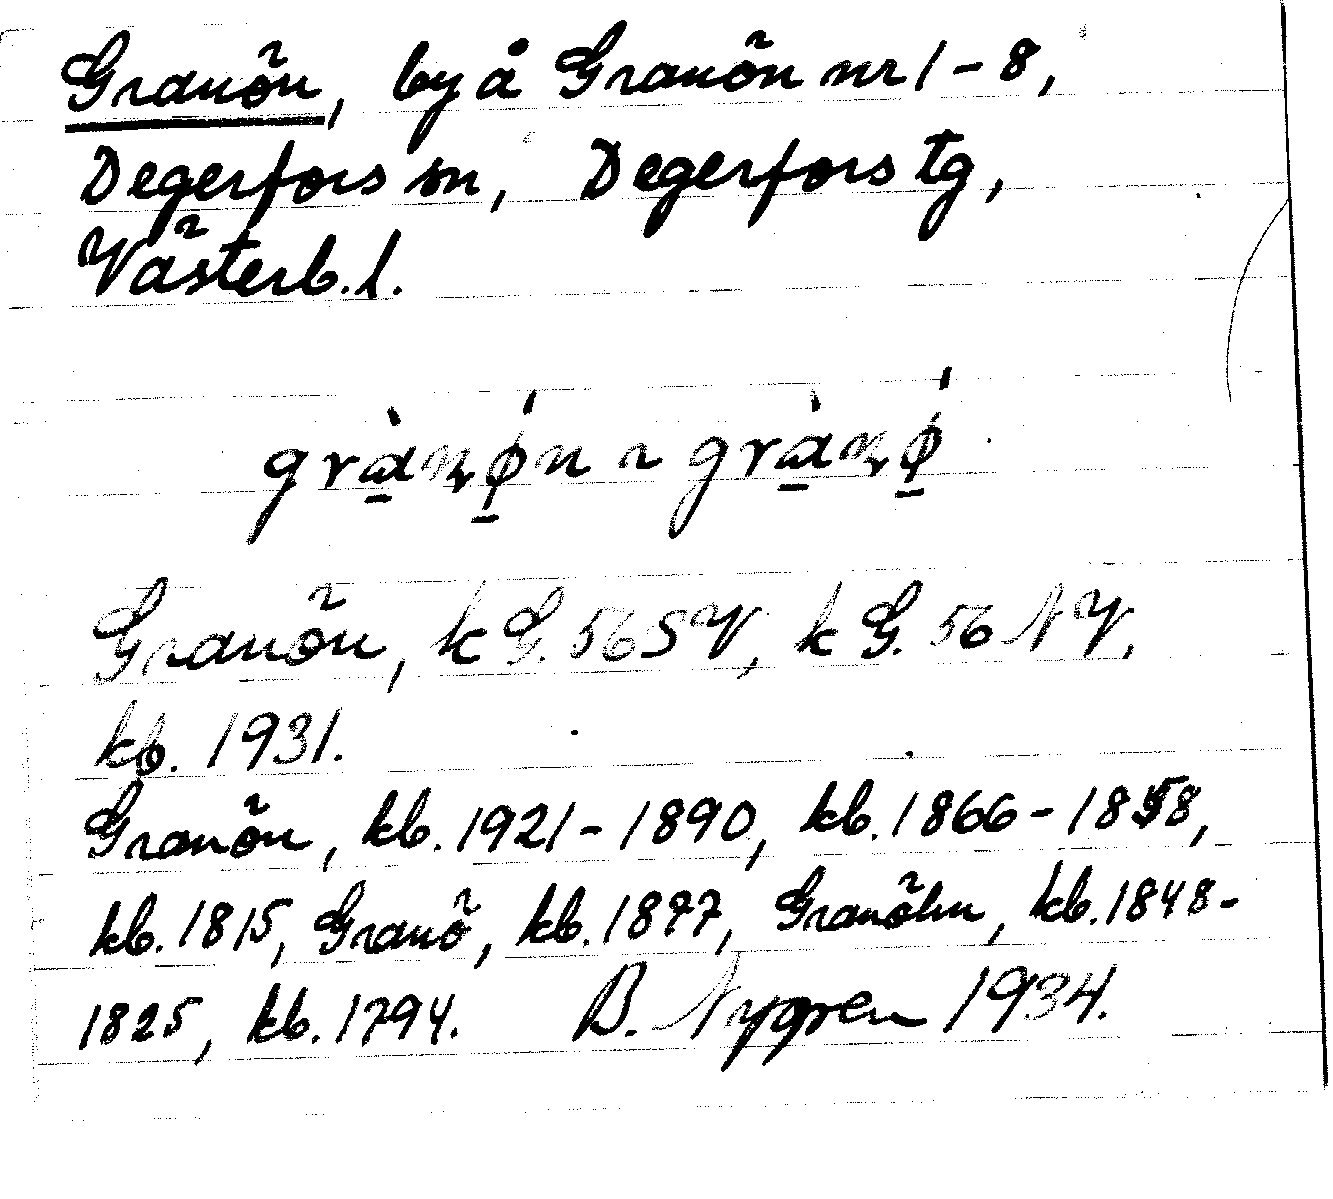 Granön, by å Granön nr 1 - 8,
Degerfors sn, Degerfors tg,
Västerb. l.
grànǿn ~ grànǿ
Granön, k G. 56 SV, k G. 56 NV,
kb. 1931.
Granön, kb. 1921 - 1890, kb. 1866 - 1858,
kb. 1815, Granö, kb. 1877, Granöhn, kb. 1848 -
1825, kb. 1794. B. Nygren 1934.